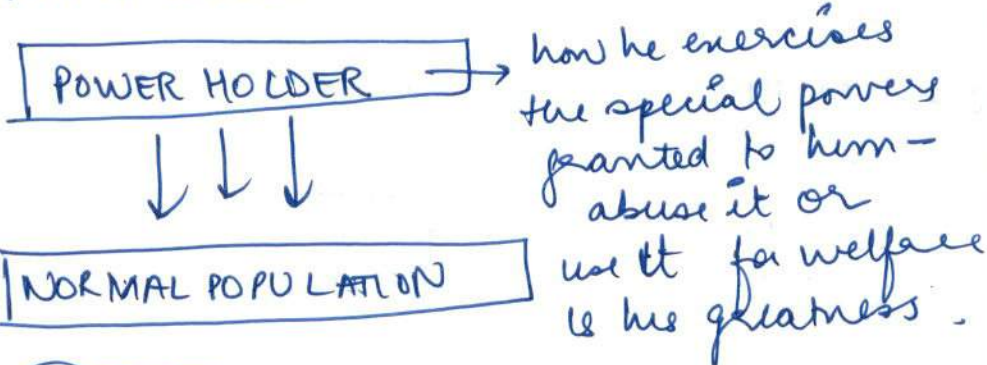 POWER HOLDER
how he exercises
the special powers
granted to him -
abuse it or
use it for welfare
is his greatness.
NORMAL POPULATION